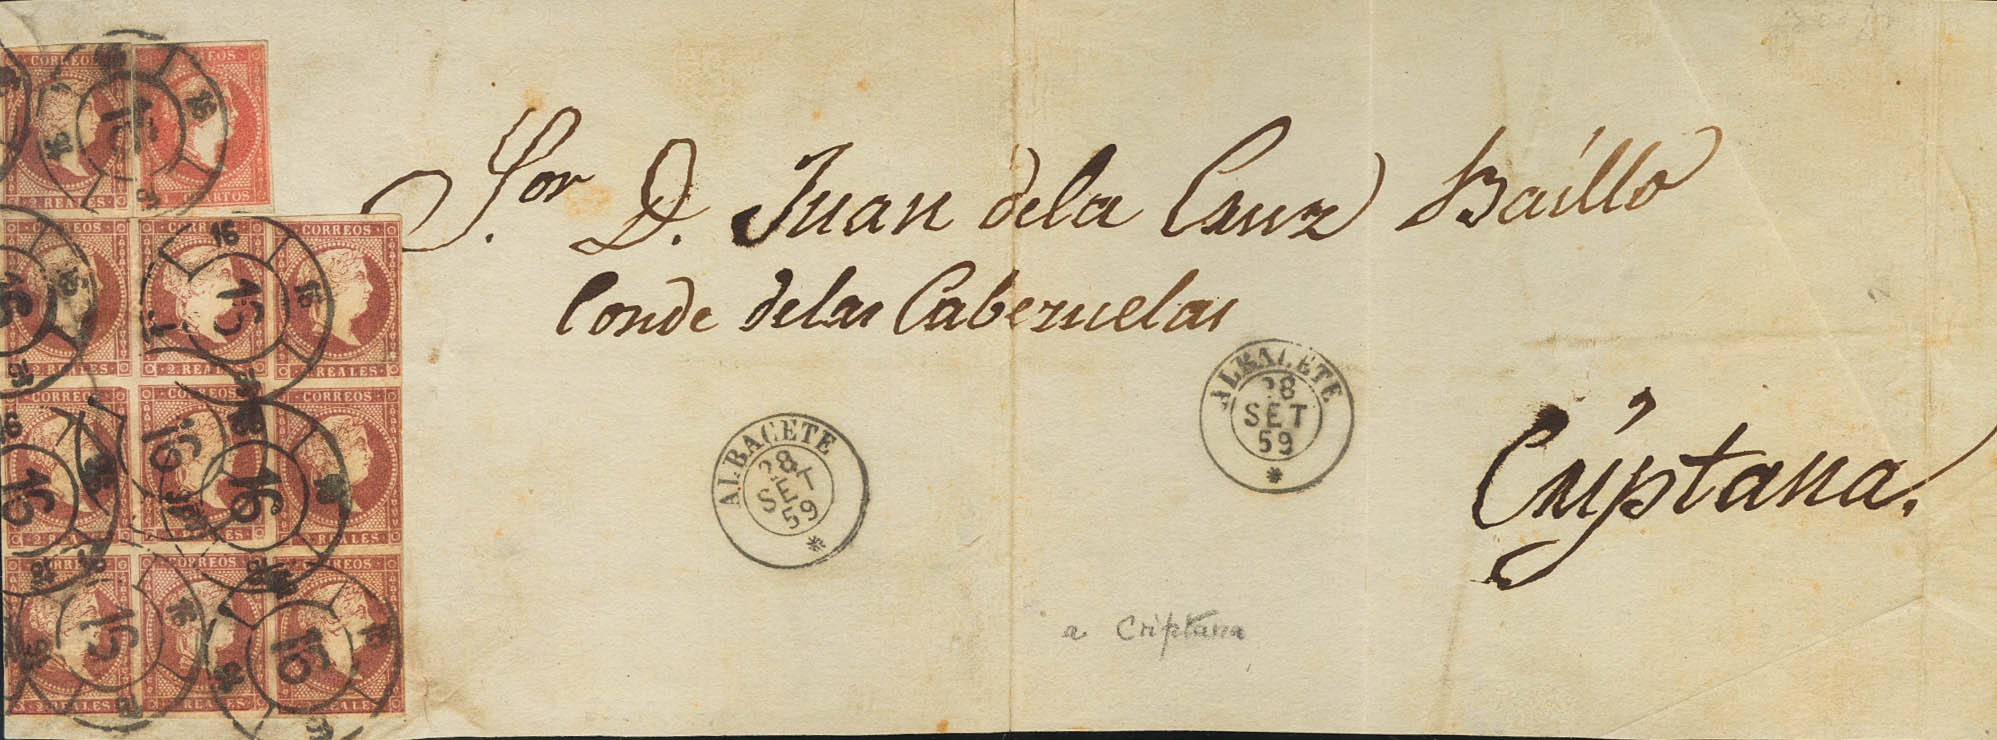 CORREOS
2. REALES
CORREOS
CUARTOS
CORREOS CORREOS CORREOS
2. REALES 2. REALES 2. REALES
CORREOS CORREOS CORREOS
2. REALES 2. REALES 2. REALES
CORREOS CORREOS CORREOS
2. REALES 2. REALES 2. REALES
16
S.or D. Juan dela Cruz Baillo
Conde delas Cabezuelas
Criptana.
ALBACETE
28
SET
59
ALBACETE
28
SET
59
a Criptana